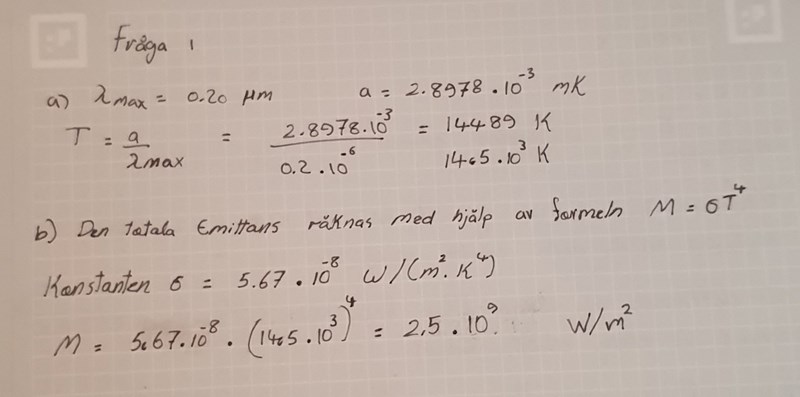 Fråga 1
a) λmax = 0.20 µm a = 2.8978 . 10⁻³ mK
T = a/λmax = 2.8978.10⁻³/0.2 . 10⁻⁶ = 14489 K
14.5 . 10³ K
b) Den totala Emittans räknas med hjälp av formeln M = σT⁴
Konstanten σ = 5.67 . 10⁻⁸ W/(m². K⁴)
M = 5.67.10⁻⁸ . (14.5 . 10³)⁴ = 2,5 . 10⁹. W/m²